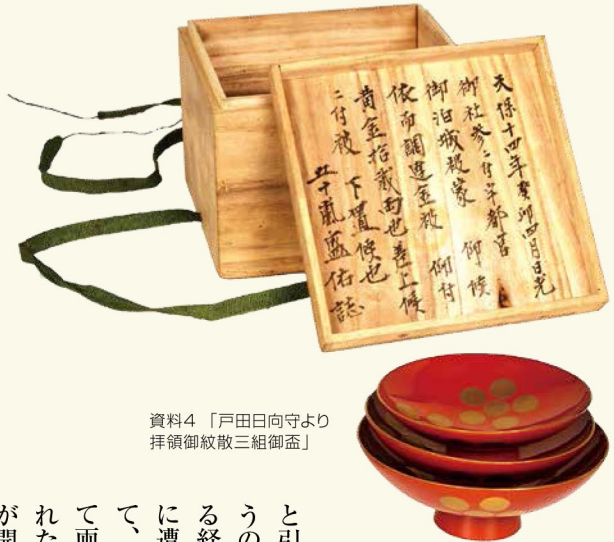 天保十四年癸卯四月日光
御社参ニ付宇都宮
御泊城被蒙 仰候
依而調達金被 仰付
黄金拾弐両也差上候
ニ付被 下置候也
五十嵐 佑誌
資料4 「戸田日向守より
拝領御紋散三組御盃」
と引
うの
る経
に遭
て、
て両
れた
が開